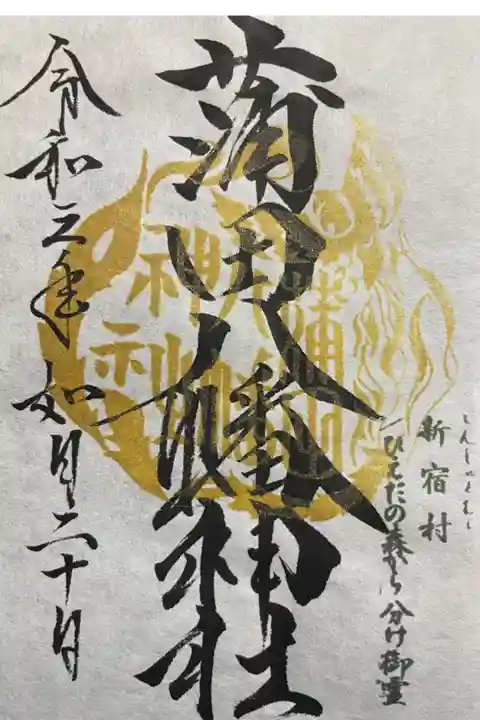 しんしゅくむら
新宿村
ひえだの森から分け御霊
蒲田八幡神社
令和三年如月二十日